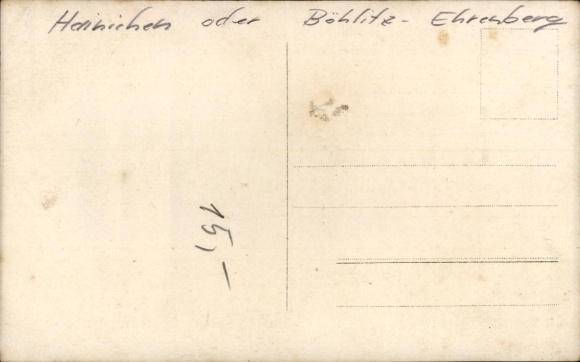 Hainichen oder Böhlitz-Ehrenberg
15,-